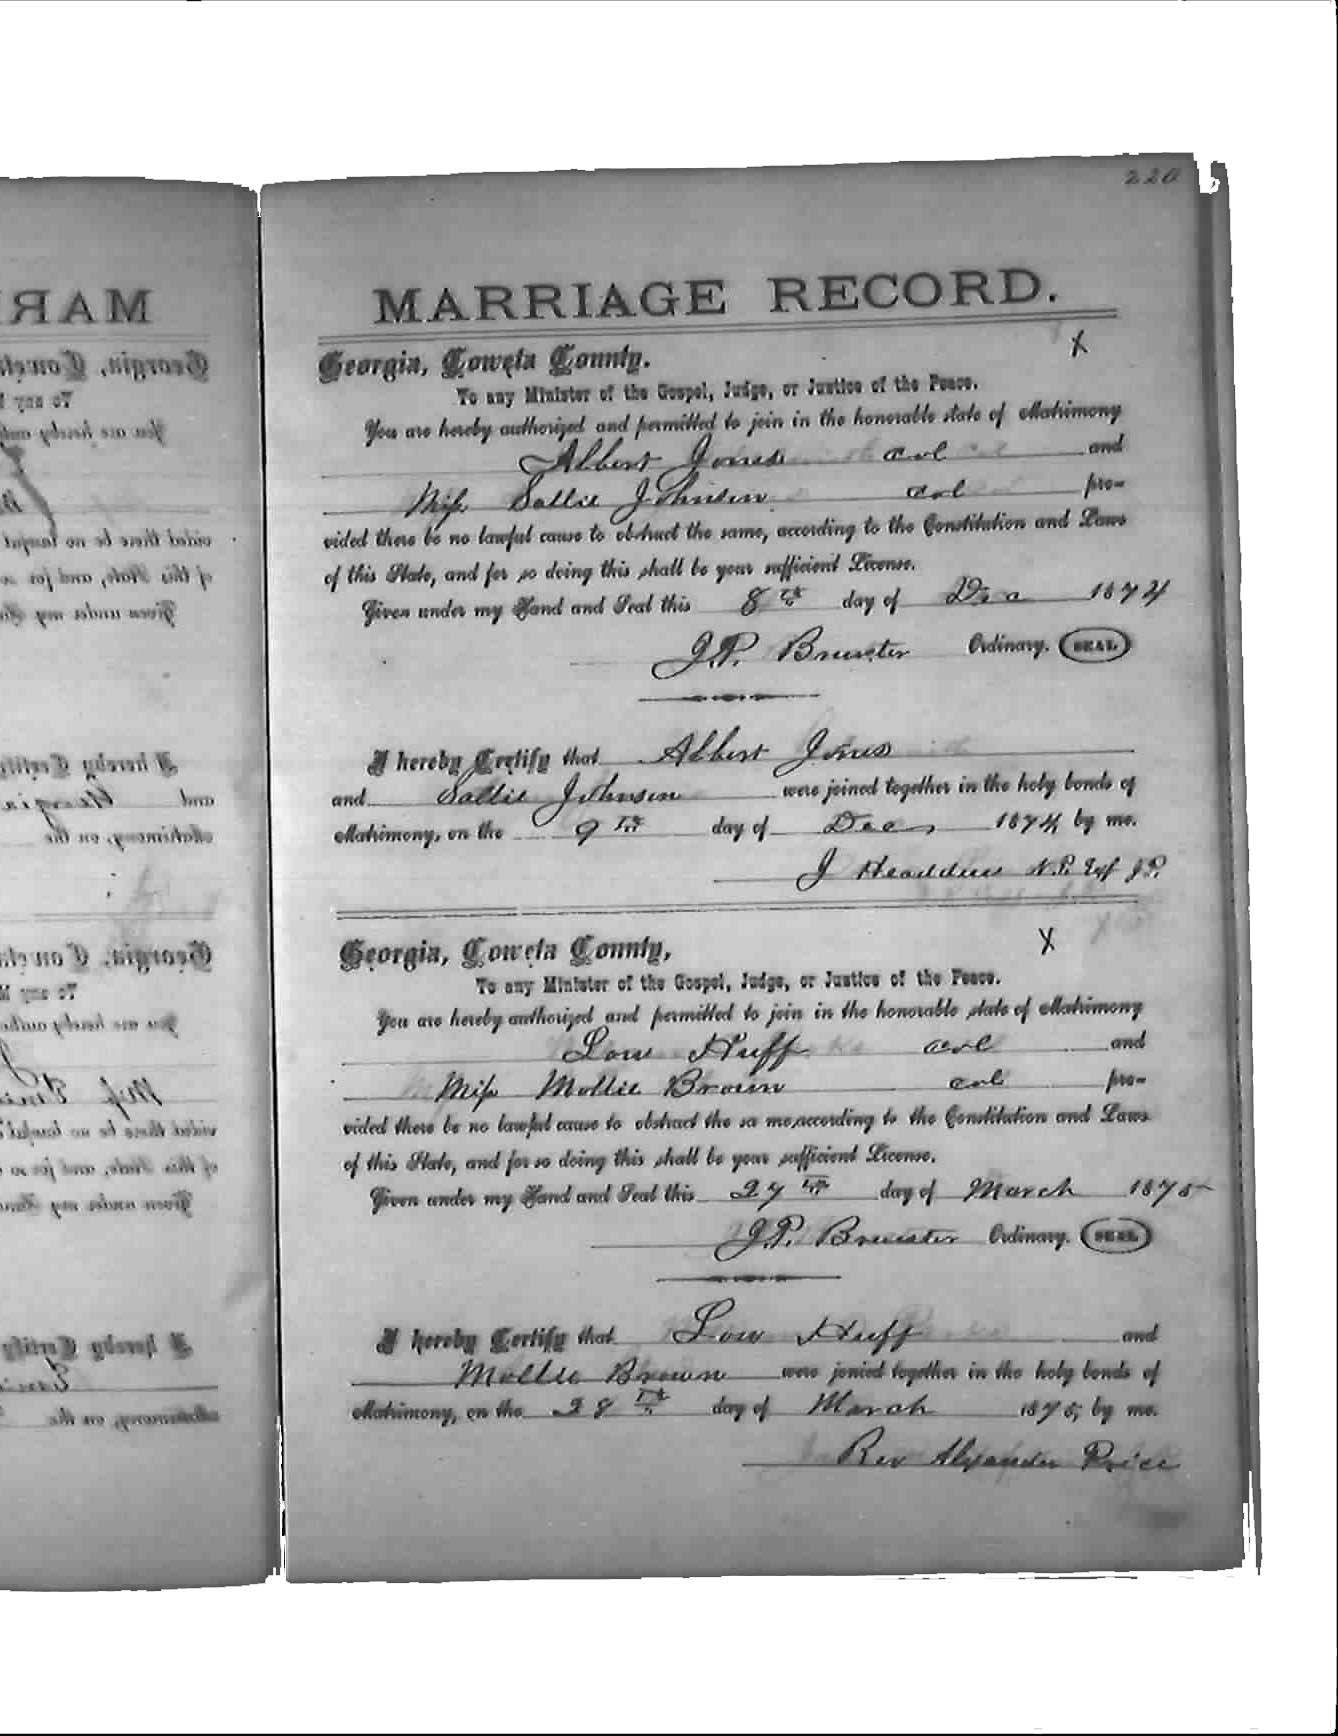 220
MARRIAGE RECORD.
X
Georgia, Coweta County.
To any Minister of the Gospel, Judge, or Justice of the Peace.
You are hereby authorized and permitted to join in the honorable state of Matrimony
Albert Jones col and
Miss Sallie Johnson col pro-
vided there be no lawful cause to obstruct the same, according to the Constitution and Laws
of this State, and for so doing this shall be your sufficient License.
Given under my Hand and Seal this 8th day of Dec 1874
J.P. Brewster Ordinary. SEAL
I hereby Certify that Albert Jones
and Sallie Johnson were joined together in the holy bonds of
Matrimony, on the 9th day of Dec 1874 by me.
J Headden N.P. Exf J.P.
X
Georgia, Coweta County,
To any Minister of the Gospel, Judge, or Justice of the Peace.
You are hereby authorized and permitted to join in the honorable state of Matrimony
Low Huff col and
Miss Mollie Brown col pro-
vided there be no lawful cause to obstruct the sa me,according to the Constitution and Laws
of this State, and for so doing this shall be your sufficient License.
Given under my Hand and Seal this 27th day of March 1875
J.P. Brewster Ordinary. SEAL
I hereby Certify that Low Huff and
Mollie Brown were jonied together in the holy bonds of
Matrimony, on the 28th day of March 1875, by me.
Rev Alexander Price